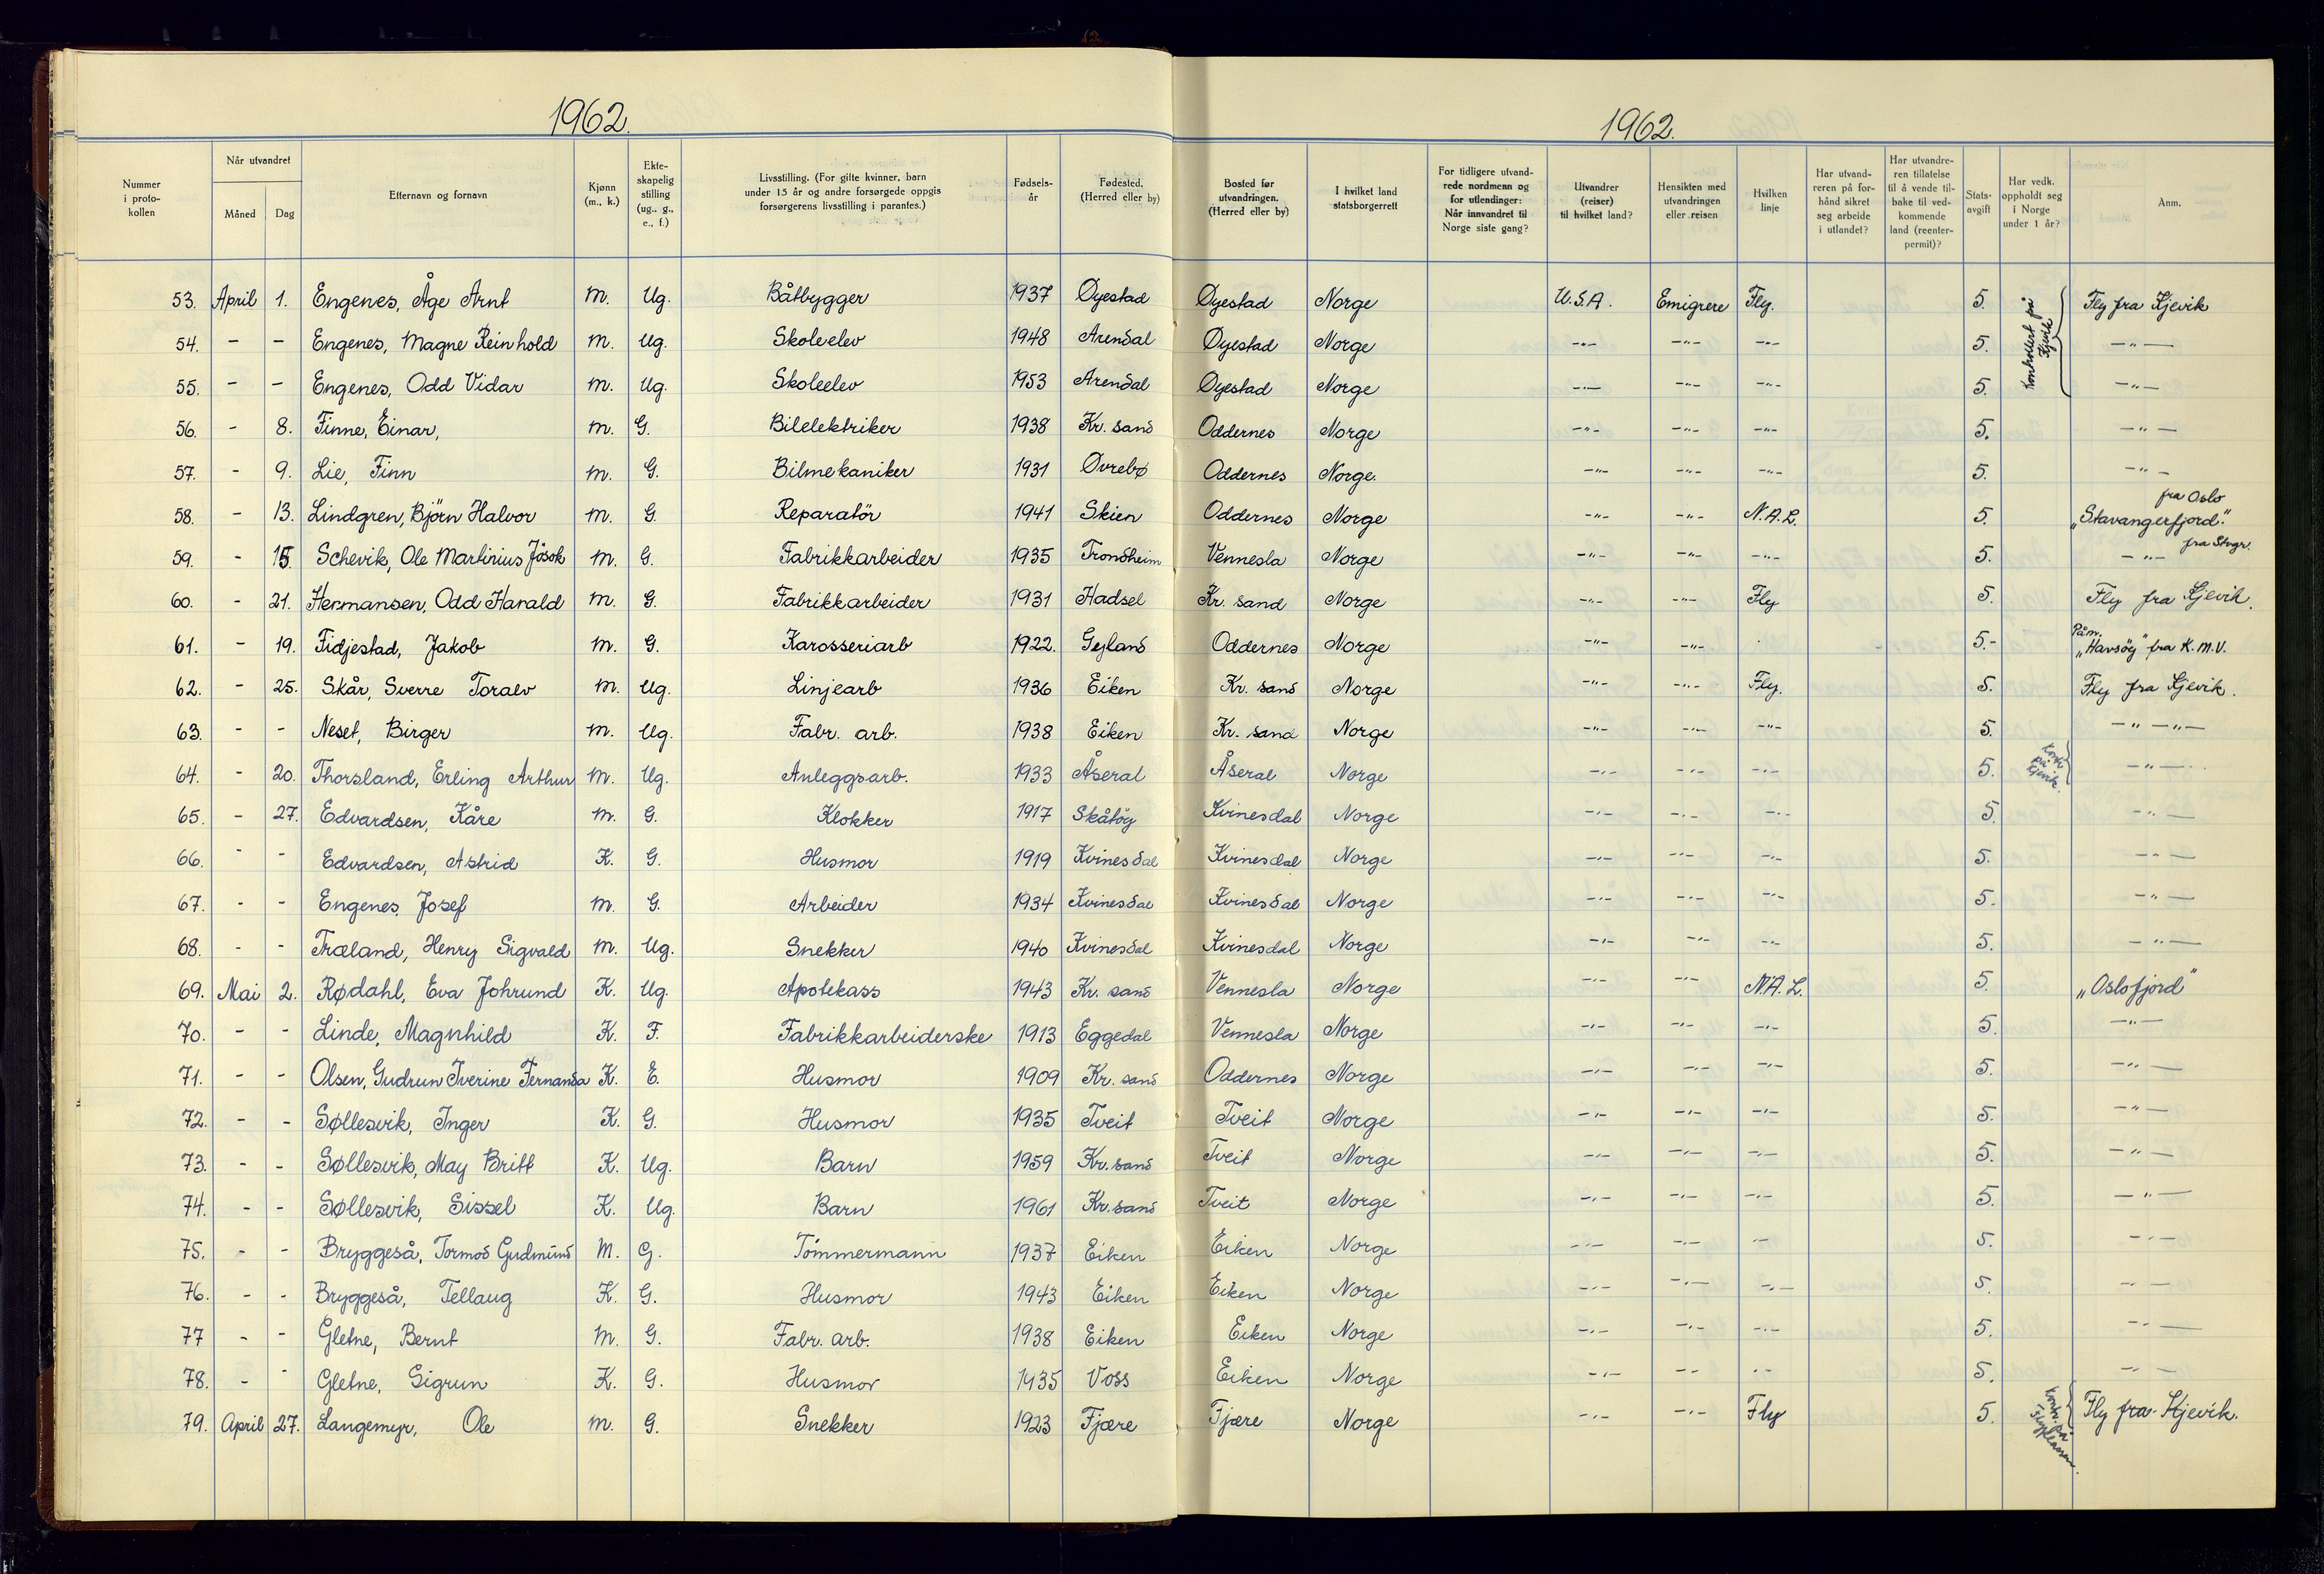 1962.
1962.
Nummer i protokollen | Når utvandret Måned Dag | Etternavn og fornavn | Kjønn (m., k.) | Ekteskapelig stilling (ug., g., e., f.) | Livsstilling. (For gifte kvinner, barn under 15 år og andre forsørgede oppgis forsørgerens livsstilling i parantes.) | Fødselsår | Fødested. (Herred eller by) | Bosted før utvandringen. (Herred eller by) | I hvilket land statsborgerrett | For tidligere utvandrede nordmenn og for utlendinger: Når innvandret til Norge siste gang? | Utvandrer (reiser) til hvilket land? | Hensikten med utvandringen eller reisen | Hvilken linje | Har utvandreren på forhånd sikret seg arbeide i utlandet? | Har utvandreren tillatelse til å vende tilbake til vedkommende land (reenterpermit)? | Statsavgift | Har vedk. oppholdt seg i Norge under 1 år? | Anm.
53. April 1. Engenes, Åge Arnt m. Ug. Båtbygger 1937 Øyestad Øyestad Norge U.S.A. Emigrere Fly. 5. Kontrollert på Kjevik Fly fra Kjevik
54. - - Engenes, Magne Reinhold m. Ug. Skoleelev 1948 Arendal Øyestad Norge -"- -"- -"- 5. -"-
55. - - Engenes, Odd Vidar m. Ug. Skoleelev 1953 Arendal Øyestad Norge -"- -"- -"- 5. -"-
56. - 8. Finne, Einar, m. G. Bilelektriker 1938 Kr. sand Oddernes Norge -"- -"- -"- 5. -"-
57. - 9. Lie, Finn m. G. Bilmekaniker 1931 Øvrebø Oddernes Norge. -"- -"- -"- 5. -"-
58. - 13. Lindgren, Björn Halvor m. G. Reparatör 1941 Skien Oddernes Norge -"- -"- N.A.L. 5. fra Oslo "Stavangerfjord."
59. - 15. Schevik, Ole Martinius Jåsok m. G. Fabrikkarbeider 1935 Trondheim Vennesla Norge -"- -"- -"- 5. -"- fra Stvgr.
60. - 21. Hermansen, Odd Harald m. G. Fabrikkarbeider 1931 Hadsel Kr. sand Norge -"- -"- Fly 5. Fly fra Kjevik.
61. - 19. Fidjestad, Jakob m. G. Karosseriarb 1922. Gyland Oddernes Norge -"- -"- 5.- Påm. "Havsöy" fra K.M.V.
62. - 25. Skår, Sverre Toralv m. Ug. Linjearb 1936 Eiken Kr. sand Norge -"- -"- Fly. 5. Fly fra Kjevik.
63. - - Neset, Birger m. Ug. Fabr. arb. 1938 Eiken Kr. sand Norge -"- -"- -"- 5. -"- -"-
64. - 20. Thorsland, Erling Arthur m. Ug. Anleggsarb. 1933 Åseral Åseral Norge -"- -"- -"- 5. Kontr. på Kjevik. -"-
65. - 27. Edvardsen, Kåre m. G. Klokker 1917 Skåtöy Kvinesdal Norge -"- -"- -"- 5. -"-
66. - - Edvardsen, Astrid K. G. Husmor 1919 Kvinesdal Kvinesdal Norge -"- -"- -"- 5. -"-
67. - - Engenes, Josef m. G. Arbeider 1934 Kvinesdal Kvinesdal Norge -"- -"- -"- 5. -"-
68. - - Træland, Henry Sigvald m. Ug. Snekker 1940 Kvinesdal Kvinesdal Norge -"- -"- -"- 5. -"-
69. Mai 2. Rødahl, Eva Johrund K. Ug. Apotekass 1943 Kr. sand Vennesla Norge -"- -"- N.A.L. 5. "Oslofjord"
70. - - Linde, Magnhild K. F. Fabrikkarbeiderske 1913 Eggedal Vennesla Norge -"- -"- -"- 5. -"-
71. - - Olsen, Gudrun Iverine Fernanda K. E. Husmor 1909 Kr. sand Oddernes Norge -"- -"- -"- 5. -"-
72. - - Søllesvik, Inger K. G. Husmor 1935 Tveit Tveit Norge -"- -"- -"- 5. -"-
73. - - Søllesvik, May Britt K. Ug. Barn 1959 Kr. sand Tveit Norge -"- -"- -"- 5. -"-
74. - - Søllesvik, Sissel K. Ug. Barn 1961 Kr. sand Tveit Norge -"- -"- -"- 5. -"-
75. - - Bryggeså, Tormod Gudmund M. G. Tömmermann 1937 Eiken Eiken Norge -"- -"- -"- 5. -"-
76. - - Bryggeså, Tellaug K. G. Husmor 1943 Eiken Eiken Norge -"- -"- -"- 5. -"-
77 - - Gletne, Bernt m. G. Fabr. arb. 1938 Eiken Eiken Norge -"- -"- -"- 5. -"-
78. - - Gletne, Sigrun K. G. Husmor 1935 Voss Eiken Norge -"- -"- -"- 5. -"-
79. April 27. Langemyr, Ole m. G. Snekker 1923 Fjære Fjære Norge -"- -"- Fly 5. Kontr. på Flyplassen. Fly fra Kjevik.